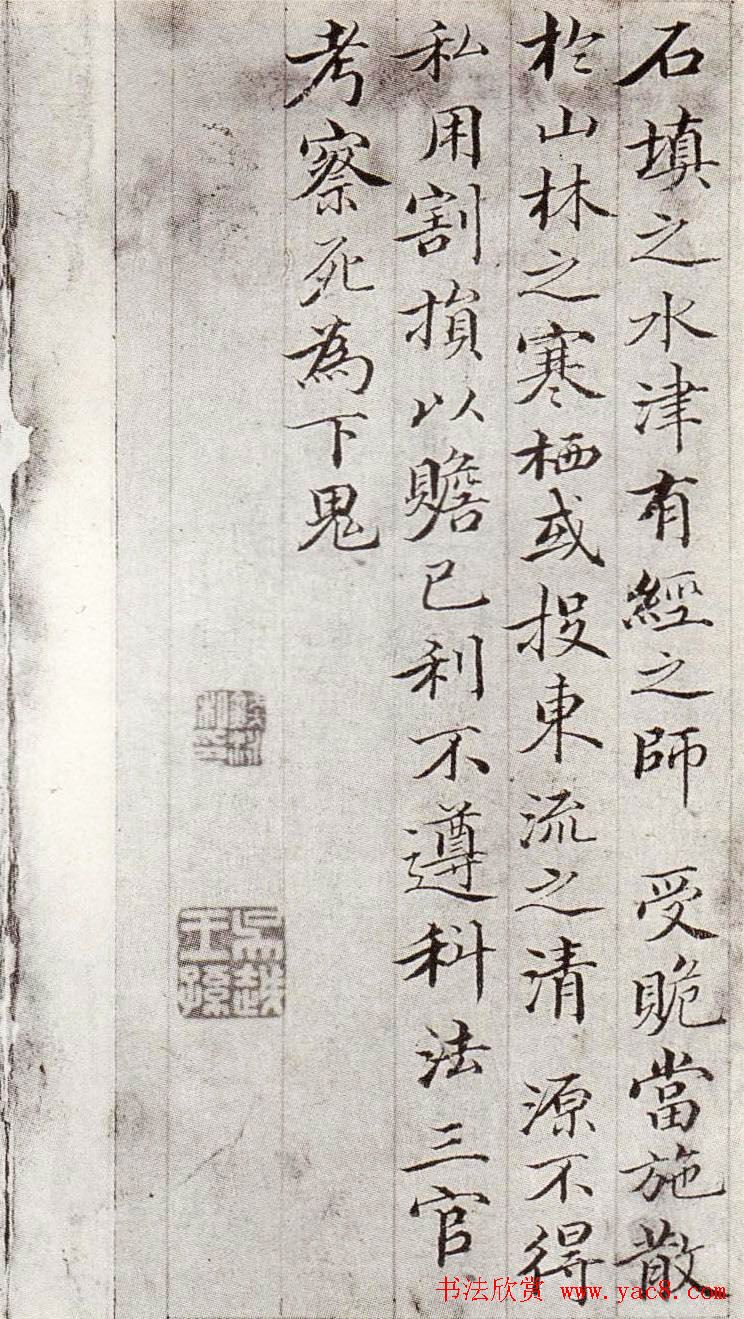 石填之水津有經之師受賝當施散
於山林之寒栖或投東流之清源不得
私用割損以贍已利不遵科法三官
考察死為下鬼
吳越王孫
书法欣赏 www.yac8.com